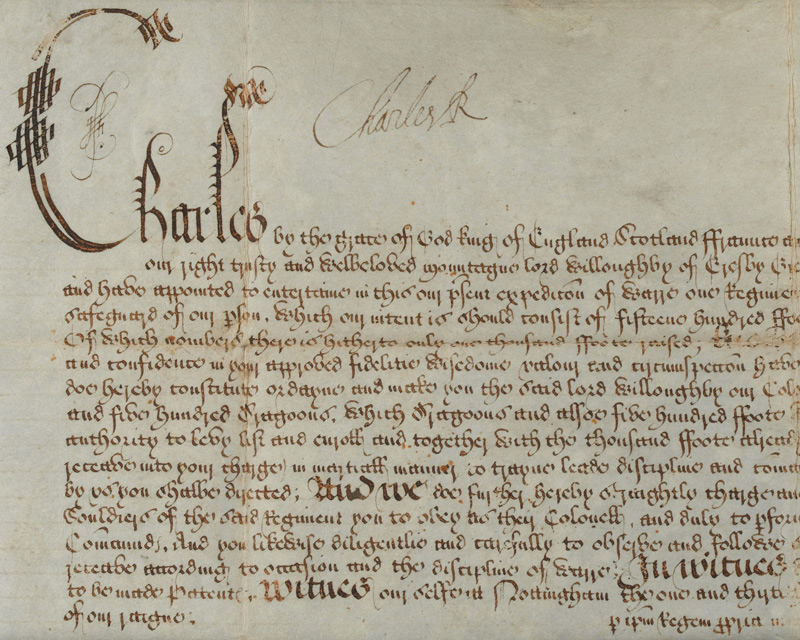 Charles R
Charles by the grace of God king of England Scotland ffraunce a
our right trusty and welbeloved Mountague lord Willoughby of Ersby
and have appointed to entertaine in this our p̄sent expedic̄on of warre one Regime
safeguard of our p̄son, which our intent is should consist of fifteene hundred ffoo
Of which nombers there is hitherto only one thousand ffoote raised;
and confidence in your approved fidelitie wisedome valour and circumspecc̄on have
doe hereby constitute ordayne and make you the said lord Willoughby our Colo
and five hundred Dragoons, which Dragoons and alsoe five hundred ffoote
authority to levy list and enroll and together with the thousand ffoote alread
receave into your charge in martiall manner to trayne leade discipline and com
by vs you shalbe directed; And we doe further hereby straightly charge an
Souldiers of the said Regiment you to obey as their Colonell, and duly to p̄for
Com̄and; And you likewise diligentlie and carefully to observe and followe
receave according to occasion and the discipline of warre; In witnes
to be made Patent. Witnes our selfe at Nottingham the one and thirt
of our raigne.
p ip̄m Regem p̄pria